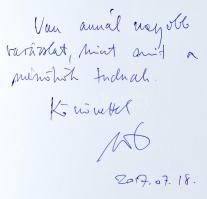 Van annál nagyobb
varázslat, mint amit a
mérnökök tudnak.
Köszönettel
2017.07.18.